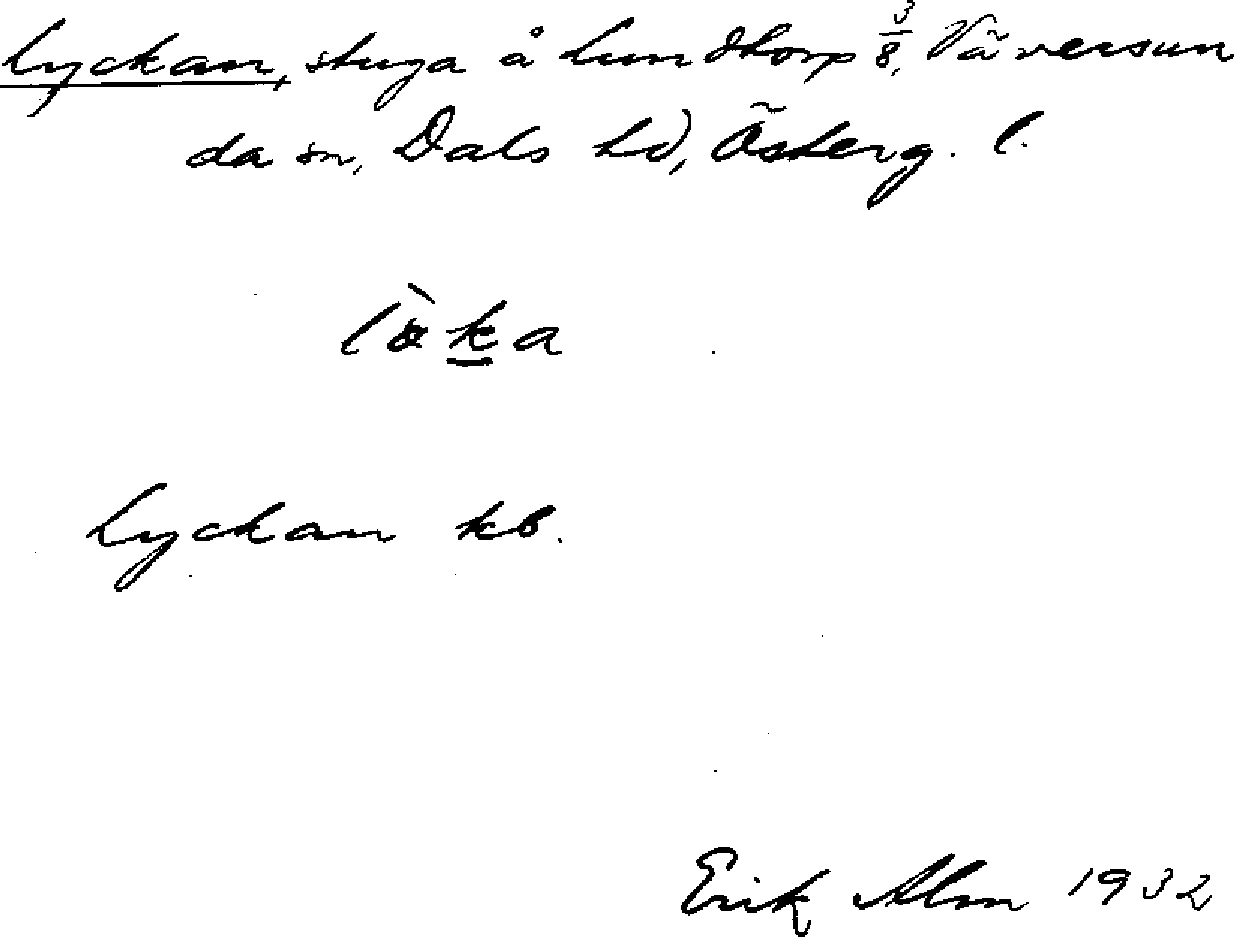 Lyckan, stuga å Lundtorp 3/8, Väversun
da sn, Dals hd, Österg. l.
Lyckan kb.
Erik Alm 1932